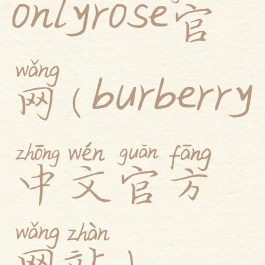 onlyrose官
wǎng
网(burberry
zhōng wén guān fāng
中文官方
wǎng zhàn
网站)